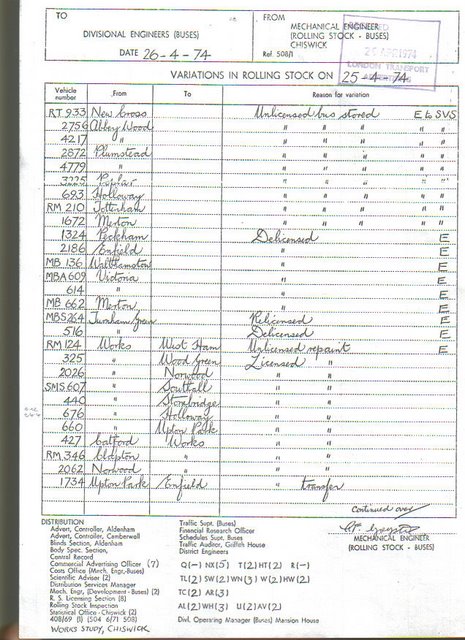 TO
DIVISIONAL ENGINEERS (BUSES)
DATE 26-4-74
FROM
MECHANICAL ENGINEER
(ROLLING STOCK - BUSES)
CHISWICK
Ref. 508/1
25 APR 1974
LONDON TRANSPORT
VARIATIONS IN ROLLING STOCK ON 25-4-74
Vehicle number From To Reason for variation
RT 933 New Cross Unlicensed bus stored E to SVS
2756 Abbey Wood " " " " "
4217 " " " " " "
2872 Plumstead " " " " "
4779 " " " " " "
3225 Poplar " " " " "
693 Holloway " " " " "
RM 210 Tottenham " " " " "
1672 Merton " " " " "
1324 Peckham Delicensed E
2186 Enfield " E
MB 136 Walthamstow " E
MBA 609 Victoria " E
614 " " E
MB 662 Merton " E
MBS 264 Turnham Green Relicensed E
516 " Delicensed E
RM 124 Works West Ham Unlicensed repaint E
325 " Wood Green Licensed "
2026 " Norwood " "
SMS 607 " Southall " "
440 " Stonebridge " "
676 " Holloway " "
660 " Upton Park " "
427 Catford Works " "
RM 346 Clapton " " "
2062 Norwood " " "
1734 Upton Park Enfield " transfer
Continued over
MECHANICAL ENGINEER
(ROLLING STOCK - BUSES)
DISTRIBUTION
Advert. Controller, Aldenham
Advert. Controller, Camberwell
Blinds Section, Aldenham
Body Spec. Section,
Central Record
Commercial Advertising Officer (7)
Costs Office (Mech. Engr.-Buses)
Scientific Adviser (2)
Distribution Services Manager
Mech. Engr. (Development - Buses) (2)
R. S. Licensing Section (8)
Rolling Stock Inspection
Statistical Office - Chiswick (2)
408/69 (1) (504 6/71 508)
WORKS STUDY, CHISWICK
Traffic Supt. (Buses)
Financial Research Officer
Schedules Supt. Buses
Traffic Auditor, Griffith House
District Engineers
Q(-) NX(5) T(2) HT(2) R(-)
TL(2) SW(2) WN(3) W(2) HW(2)
TC(2) AR(3)
AL(2) WH(3) U(2) AV(2)
Divl. Operating Manager (Buses) Mansion House